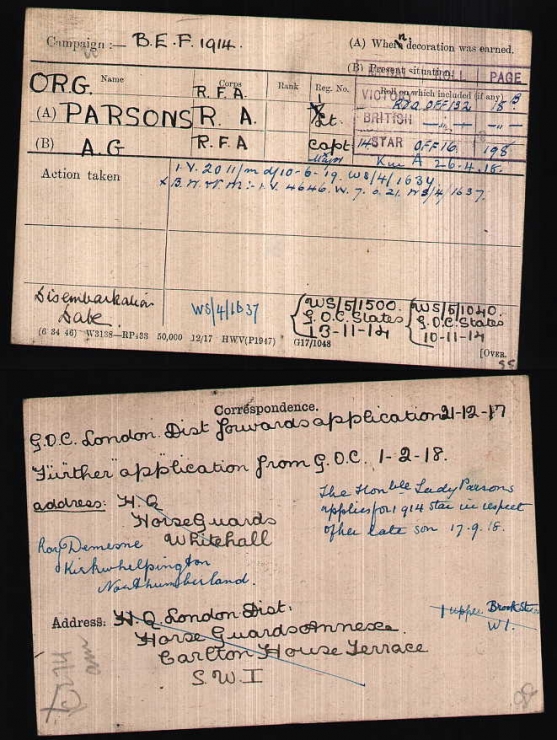 Campaign :— B.E.F. 1914.
(A) Where decoration was earned.
(B) Present situation.
Name Corps Rank Reg. No. Roll on which included (if any)
ROLL PAGE
ORG. R.F.A.
VICTORY R.A. OFF 132 18 B
(A) PARSONS R. A. Lt.
BRITISH —"— —"—
(B) A.G R.F.A Capt 14 STAR OFF 16 198
Major K in A 26.4.18.
Action taken I.V. 2011/m d/10-6-19. WS/4/1634
I.V. 4646. W. 7.6.21. WS/4/1637.
Disembarkation
Date
WS/4/1637
WS/5/1500.
G.O.C. States
13-11-14
WS/5/1040.
G.O.C. States
10-11-14
(6 34 46) W3138—RP433 50,000 12/17 HWV(P1947) G17/1048
[OVER.
Correspondence.
G.O.C. London Dist forwards application 21-12-17
Further application from G.O.C. 1-2-18.
address: H.Q
Horse Guards
Whitehall
The Honble Lady Parsons
applies for 1914 Star in respect
of her late son 17.9.18.
Ray Demesne
Kirkwhelpington
Northumberland.
1 Upper Brook St
W1.
Address: H.Q London Dist.
Horse Guards Annexe.
Carlton House Terrace
S.W.I